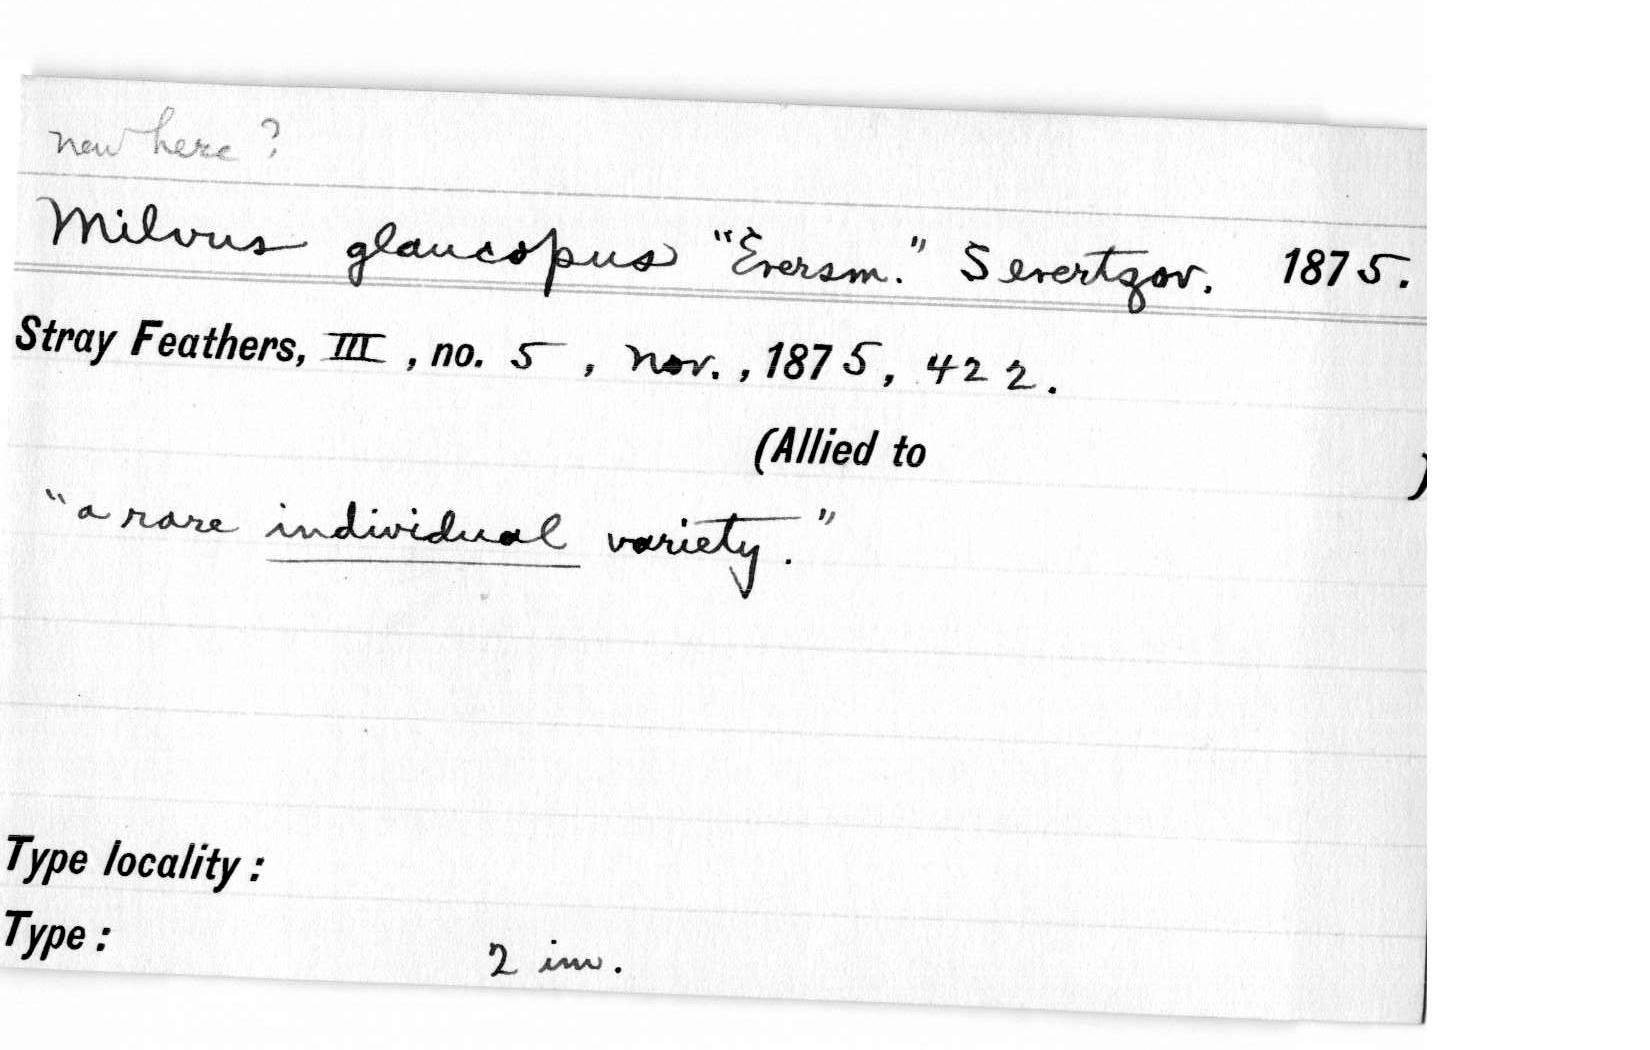 new here?
Milvus glaucopus "Eversm." Severtzov. 1875.
Stray Feathers, III, no. 5, Nov., 1875, 422.
(Allied to )
"a rare individual variety."
Type locality:
Type:
2 im.